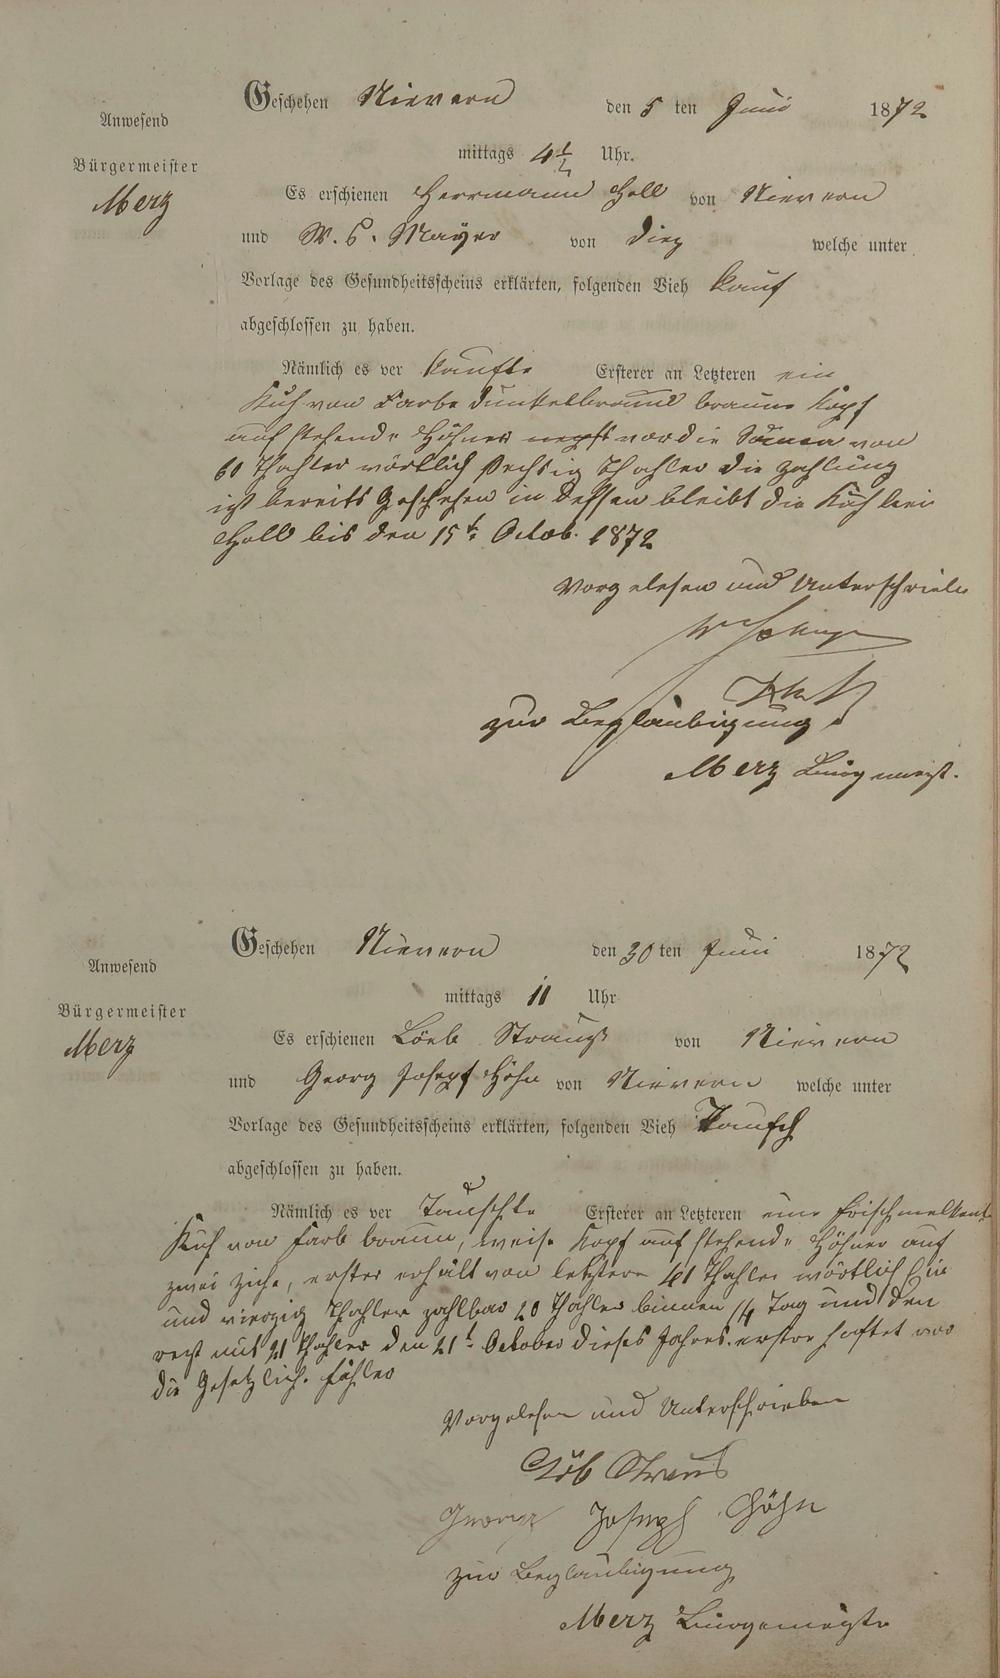 Geschehen Nievern den 5 ten Juni 1872
Anwesend
mittags 4 1/2 Uhr.
Bürgermeister
Merz
Es erschienen Herrmann Holl von Nievern
und W. S. Mayer von Diez welche unter
Vorlage des Gesundheitsscheins erklärten, folgenden Vieh kauf
abgeschlossen zu haben.
Nämlich es ver kaufte Ersterer an Letzteren ein
Kuh von Farbe dunkelbraun braune Kopf
auf stehende Höhner nepst vor die von
60 Thahler wörtlich Sechsig Thahler die Zahlung
ist bereits Geschehen in dessen bleibt die Kuh bei
Holl bis den 15t. Octob. 1872
Vorgelesen und Unterschrieben
zur Beglaubigung
Merz Bürgemeist.
Geschehen Nievern den 30 ten Juni 1872
Anwesend
mittags 11 Uhr
Bürgermeister
Merz
Es erschienen Löeb Strauß von Nievern
und Georg Josepf Höhn von Nievern welche unter
Vorlage des Gesundheitsscheins erklärten, folgenden Vieh Tausch
abgeschlossen zu haben.
Nämlich es ver Tauschte Ersterer an Letzteren eine frischmelkent
Kuh von Farb braun, weise Kopf auf stehende Höhner auf
zwei Zihe, erster erhält von letztern 41 Thahler wörtlich Ein
und vierzig Thahler zahlbar 20 Thahler binnen 14 Tag und den
rest mit 21 Thahler den 21t October dieses Jahres. erster haftet vor
die Gesetzlich. Fähler
Vorgelesen und Unterschrieben
Löb Straus
Georg Joseph Höhn
zur Beglaubigung
Merz Bürgemeister